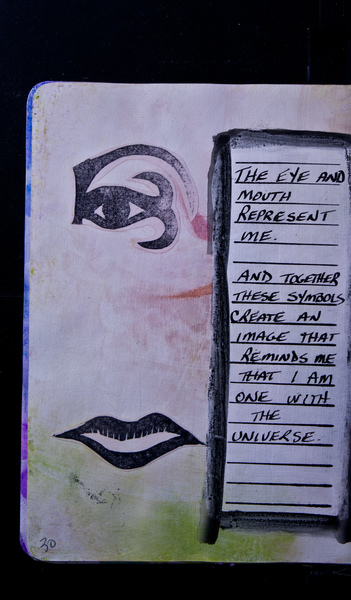 THE EYE AND
MOUTH
REPRESENT
ME.
AND TOGETHER
THESE SYMBOLS
CREATE AN
IMAGE THAT
REMINDS ME
THAT I AM
ONE WITH
THE
UNIVERSE.
30